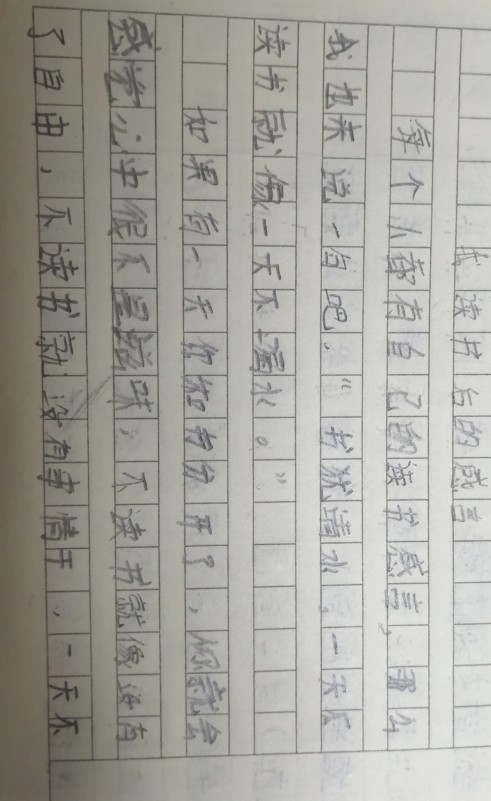 我读书后的感言
每个人都有自己的读书感言，那么
我也来说一句吧，“书犹清水，一天不
读书就像一天不喝水。”
如果有一天你和书分开了，你就会
感觉心中很不是滋味，不读书就像没有
了自由，不读书就没有事情干，一天不